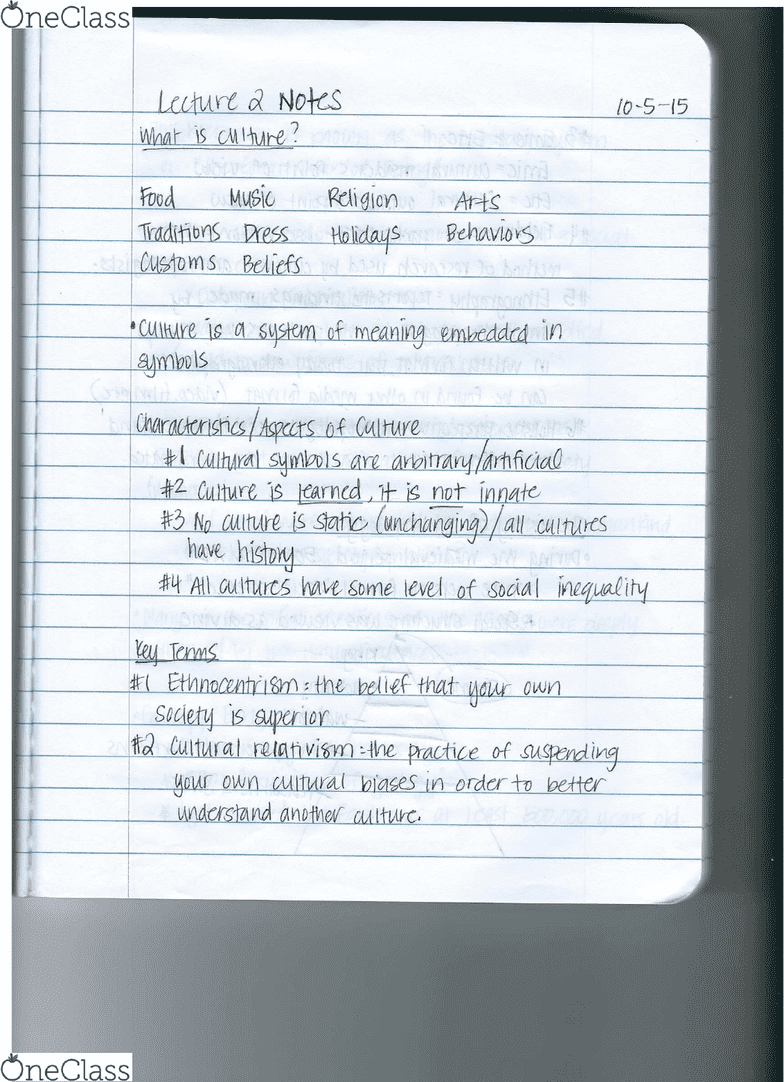 OneClass
Lecture 2 Notes 10-5-15
What is culture?
Food Music Religion Arts
Traditions Dress Holidays Behaviors
Customs Beliefs
•Culture is a system of meaning embedded in
symbols
Characteristics/Aspects of Culture
#1 Cultural symbols are arbitrary/artificial
#2 Culture is learned, it is not innate
#3 No culture is static (unchanging)/all cultures
have history
#4 All cultures have some level of social inequality
Key Terms
#1 Ethnocentrism: the belief that your own
society is superior
#2 Cultural relativism: the practice of suspending
your own cultural biases in order to better
understand another culture.
OneClass